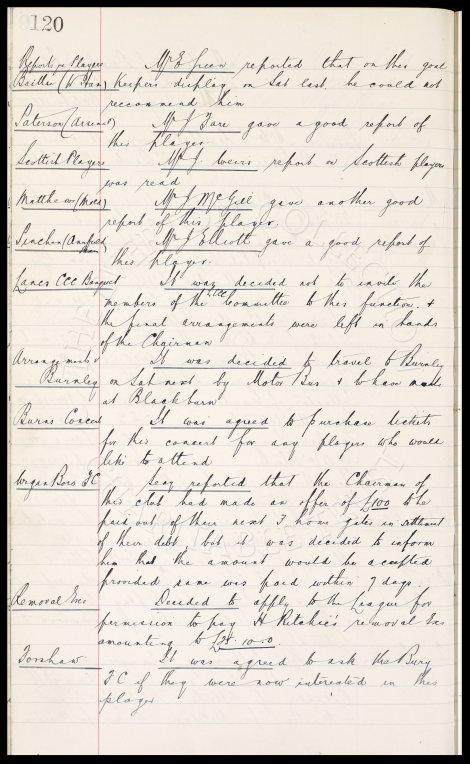 120
Reports re Players Mr E Green reported that on this goal
Brittle (W Ham) Keepers display on Sat last he could not
recommend him
Paterson (Arsenal) Mr J Fare gave a good report of
this player
Scottish Players Mr J Weirs report on Scottish players
was read
Matthews (Mold) Mr J McGill gave another good
report of this player
(Annfield Mr J Elliott gave a good report of
this player.
Lancs CCC Banquet It was decided not to invite the
members of the LCCC Committee to this function, &
the final arrangements were left in hands
of the Chairman
Arrangements It was decided to travel to Burnley
Burnley on Sat next by Motor Bus & to have meals
at Blackburn
Burns Concert It was agreed to purchase tickets
for this concert for any players who would
like to attend
Wigan Boro FC Secy reported that the Chairman of
this club had made an offer of £100 to be
paid out of their next 3 home gates in settlement
of their debt, but it was decided to inform
him that the amount would be accepted
provided same was paid within 7 days.
Removal Exs Decided to apply to the League for
permission to pay H Ritchie's removal Exs
amounting to 10-0
Forshaw It was agreed to ask the Bury
FC if they were now interested in this
player